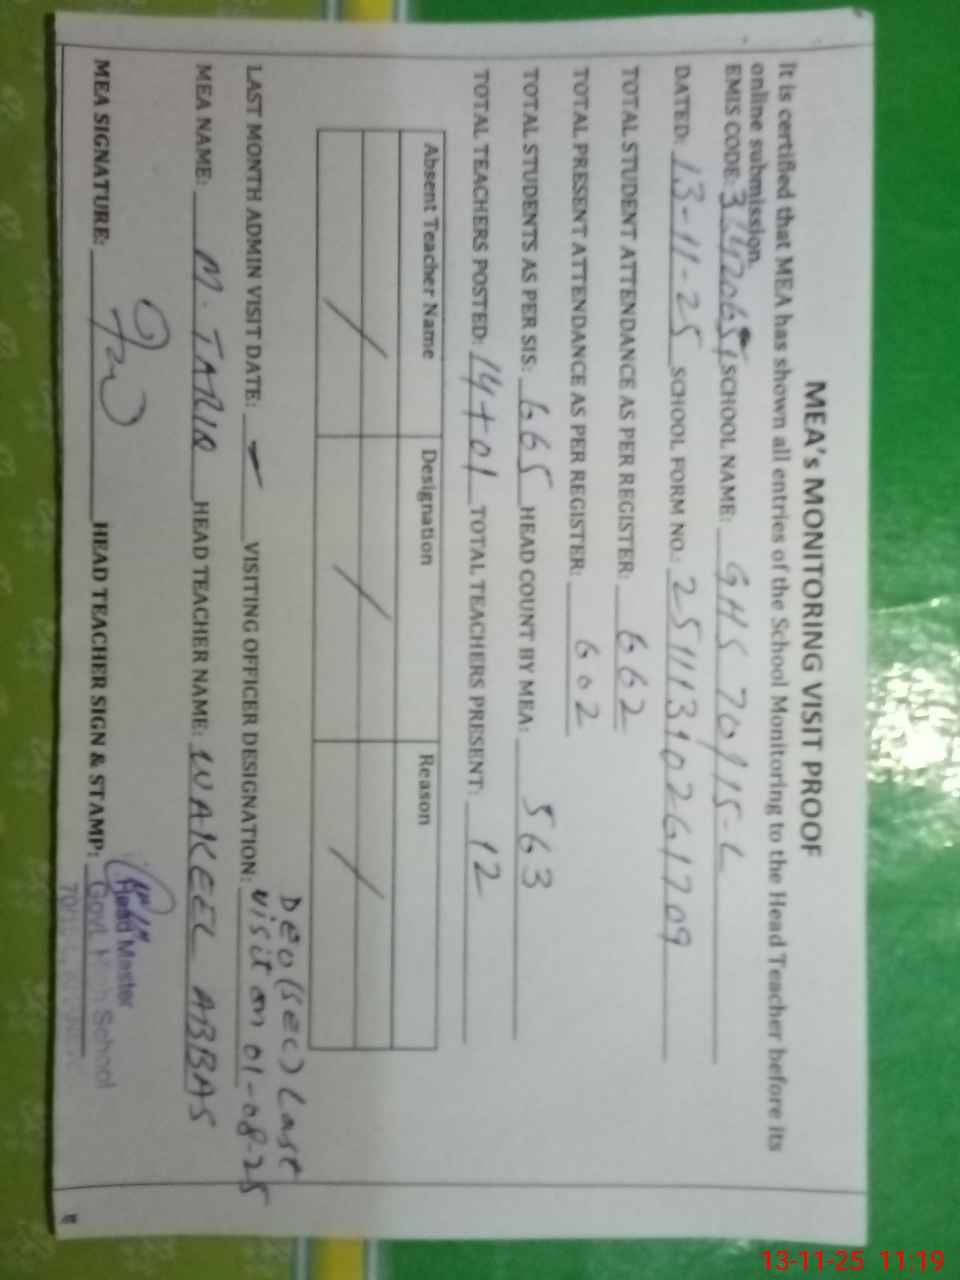 MEA's MONITORING VISIT PROOF
It is certified that MEA has shown all entries of the School Monitoring to the Head Teacher before its
online submission.
EMIS CODE: SCHOOL NAME: GHS 70/15-L
DATED: 13-11-25 SCHOOL FORM NO.:
TOTAL STUDENT ATTENDANCE AS PER REGISTER: 662
TOTAL PRESENT ATTENDANCE AS PER REGISTER: 602
TOTAL STUDENTS AS PER SIS: 665 HEAD COUNT BY MEA: 563
TOTAL TEACHERS POSTED: 14+01 TOTAL TEACHERS PRESENT: 12
Absent Teacher Name Designation Reason
/ / /
DEO (SEC) Last
LAST MONTH ADMIN VISIT DATE: - VISITING OFFICER DESIGNATION: visit on 01-08-25
MEA NAME: M. TARIQ HEAD TEACHER NAME: WAKEEL ABBAS
MEA SIGNATURE: HEAD TEACHER SIGN & STAMP:
Head Master
Govt. High School
13-11-25 11:19